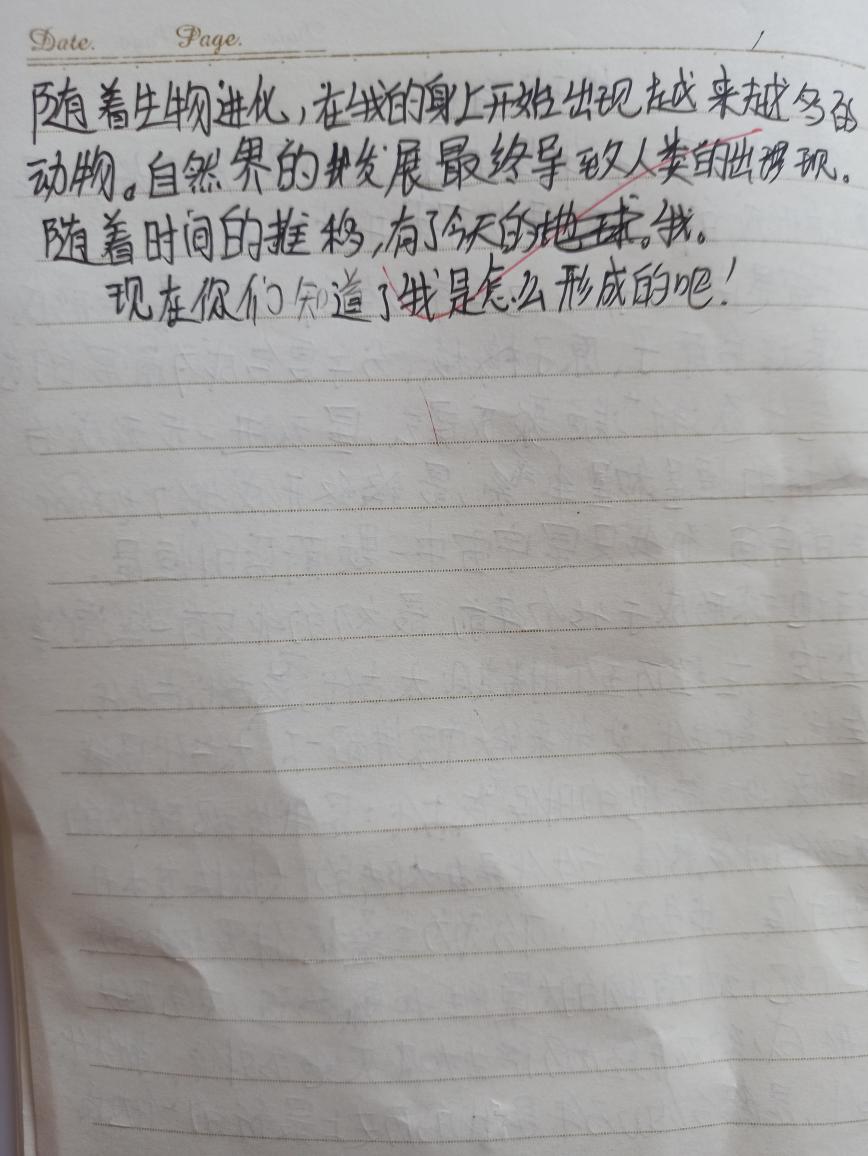 Date. Page.
随着生物进化，在我的身上开始出现越来越多的
动物。自然界的发展最终导致人类的出现。
随着时间的推移，有了今天的我。
现在你们知道了我是怎么形成的吧！